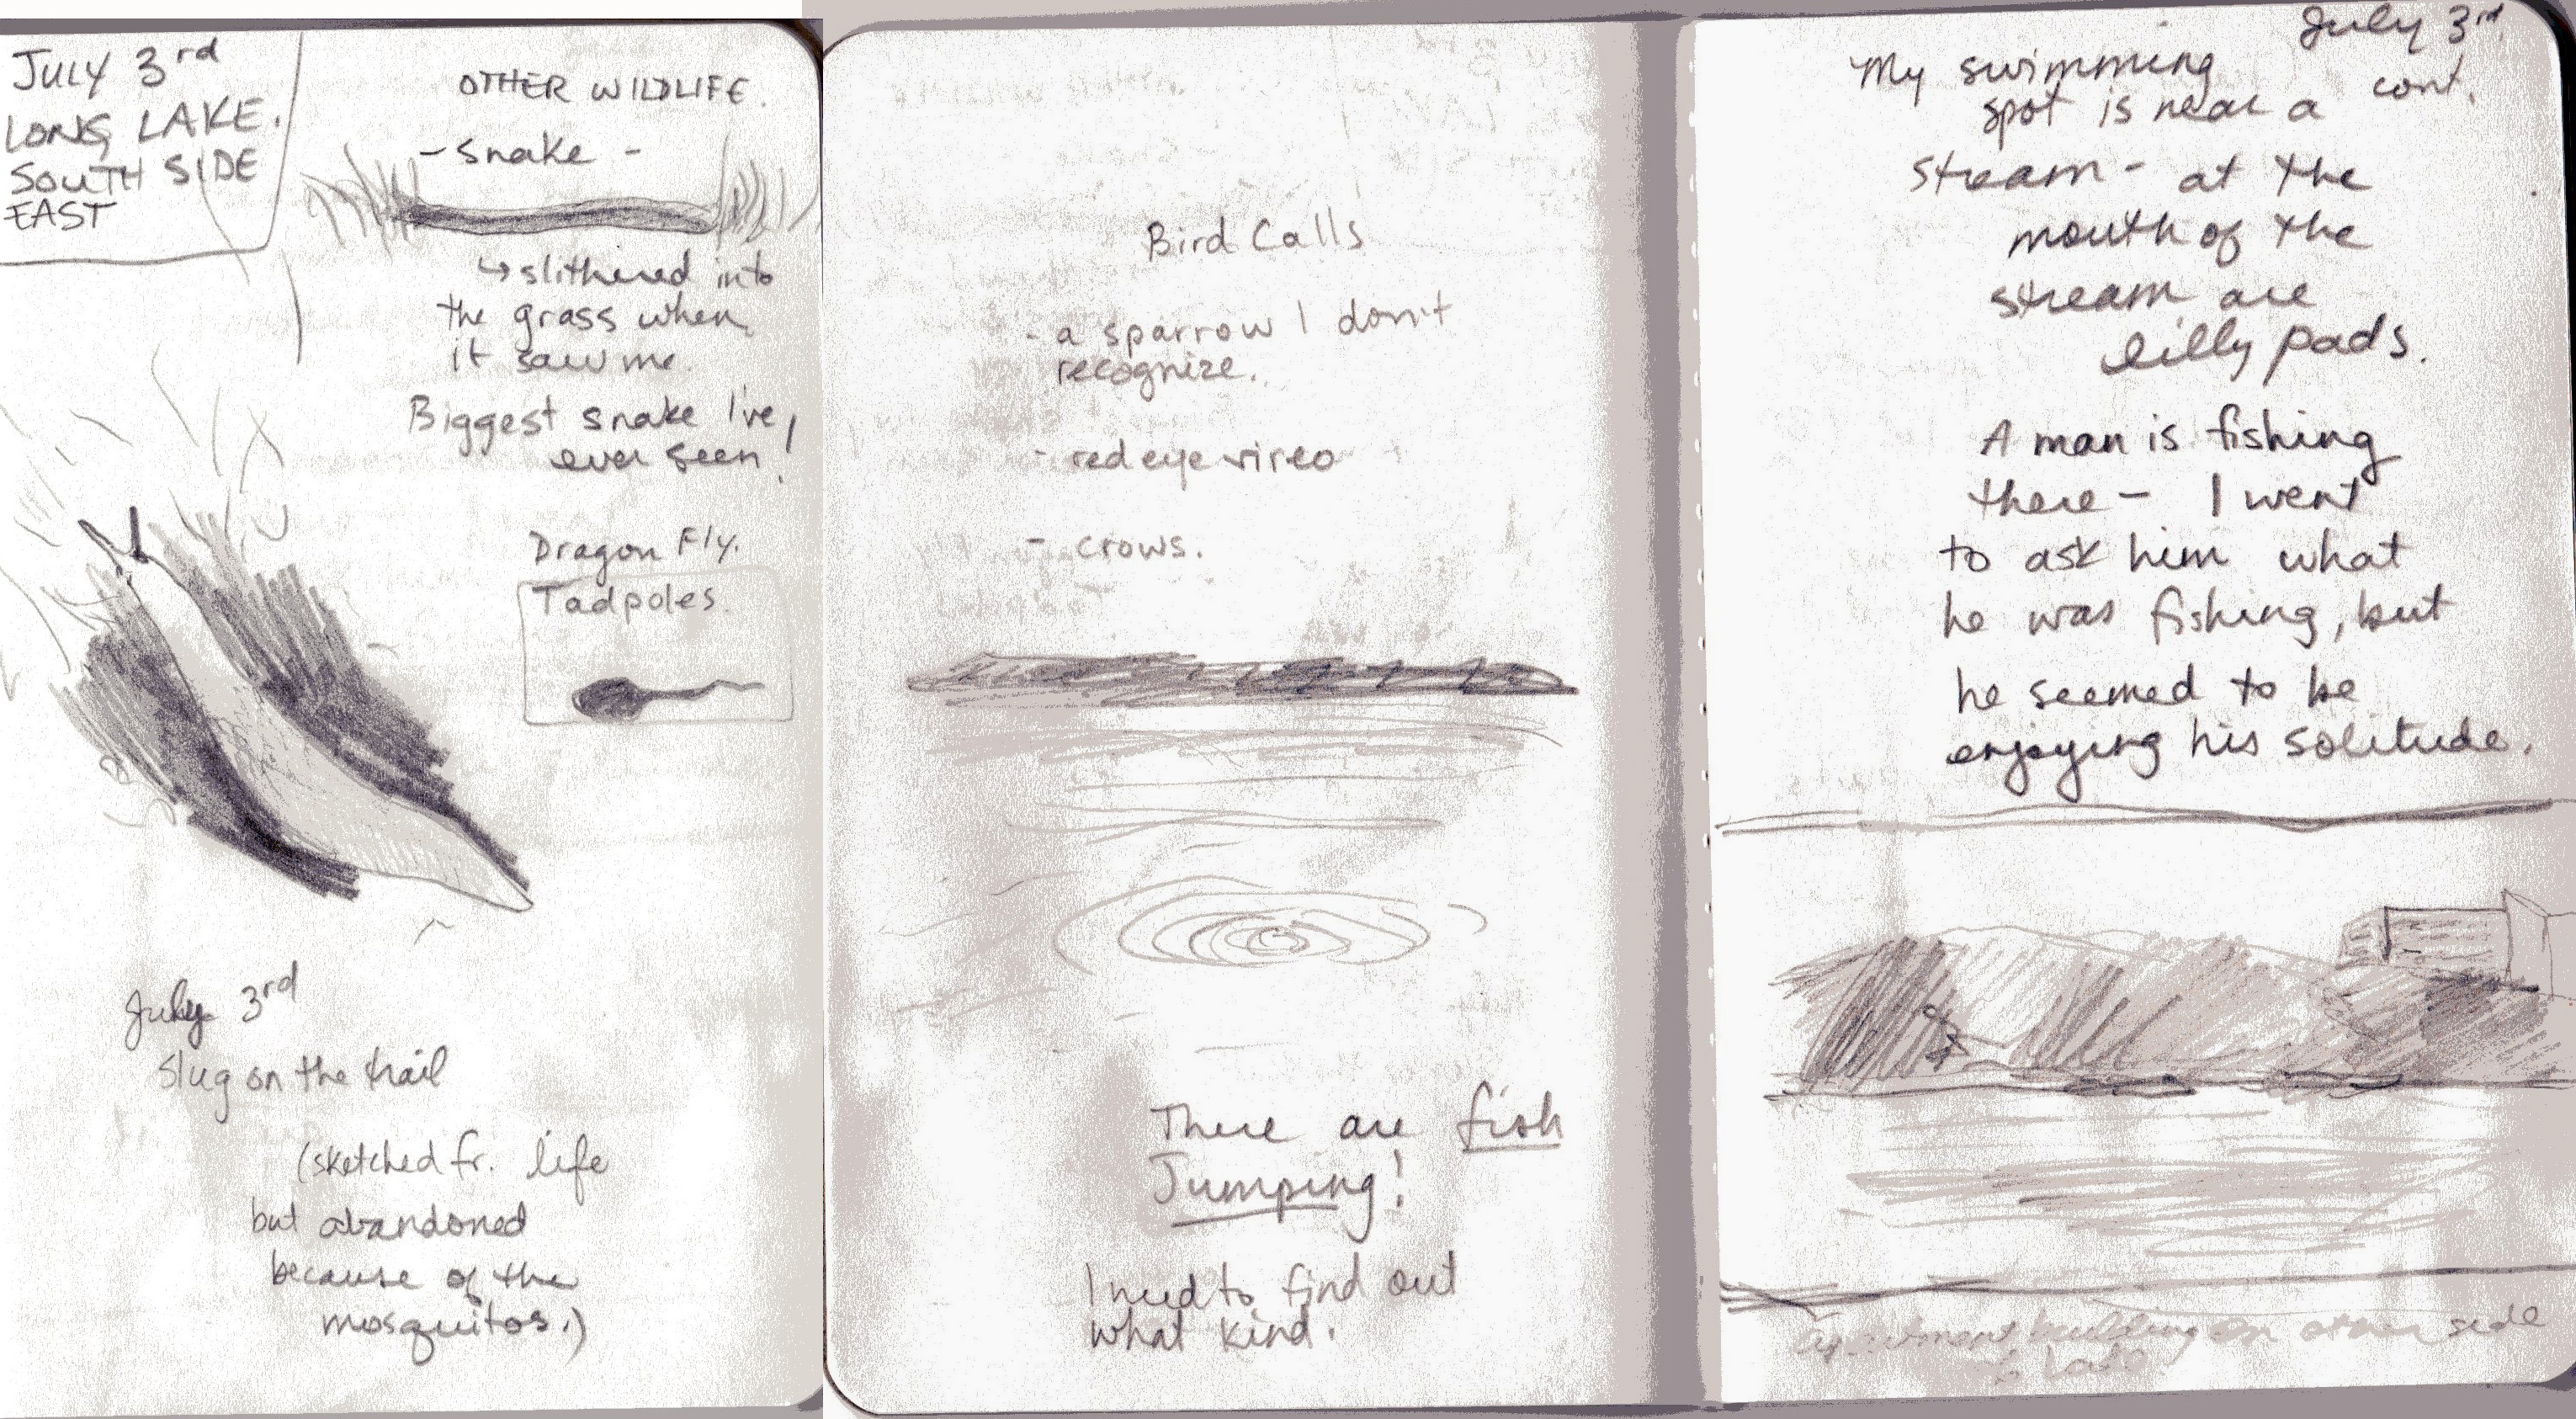 JULY 3rd
LONG LAKE.
SOUTH SIDE
EAST
OTHER WILDLIFE.
- snake -
↳ slithered into
the grass when
it saw me.
Biggest snake I've
ever seen!
Dragon Fly.
Tadpoles.
July 3rd
Slug on the trail
(sketched fr. life
but abandoned
because of the
mosquitos.)
Bird Calls
- a sparrow I don't
recognize.
- red eye vireo
- crows.
There are fish
Jumping!
I need to find out
what kind.
July 3rd
cont.
My swimming
spot is near a
stream - at the
mouth of the
stream are
lilly pads.
A man is fishing
there - I went
to ask him what
he was fishing, but
he seemed to be
enjoying his solitude.
apartment building on other side
of lake